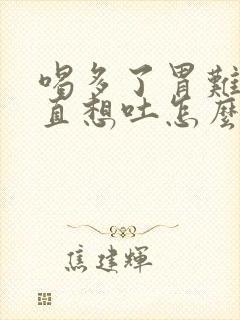 喝多了胃難
直想吐怎麼
焦建輝